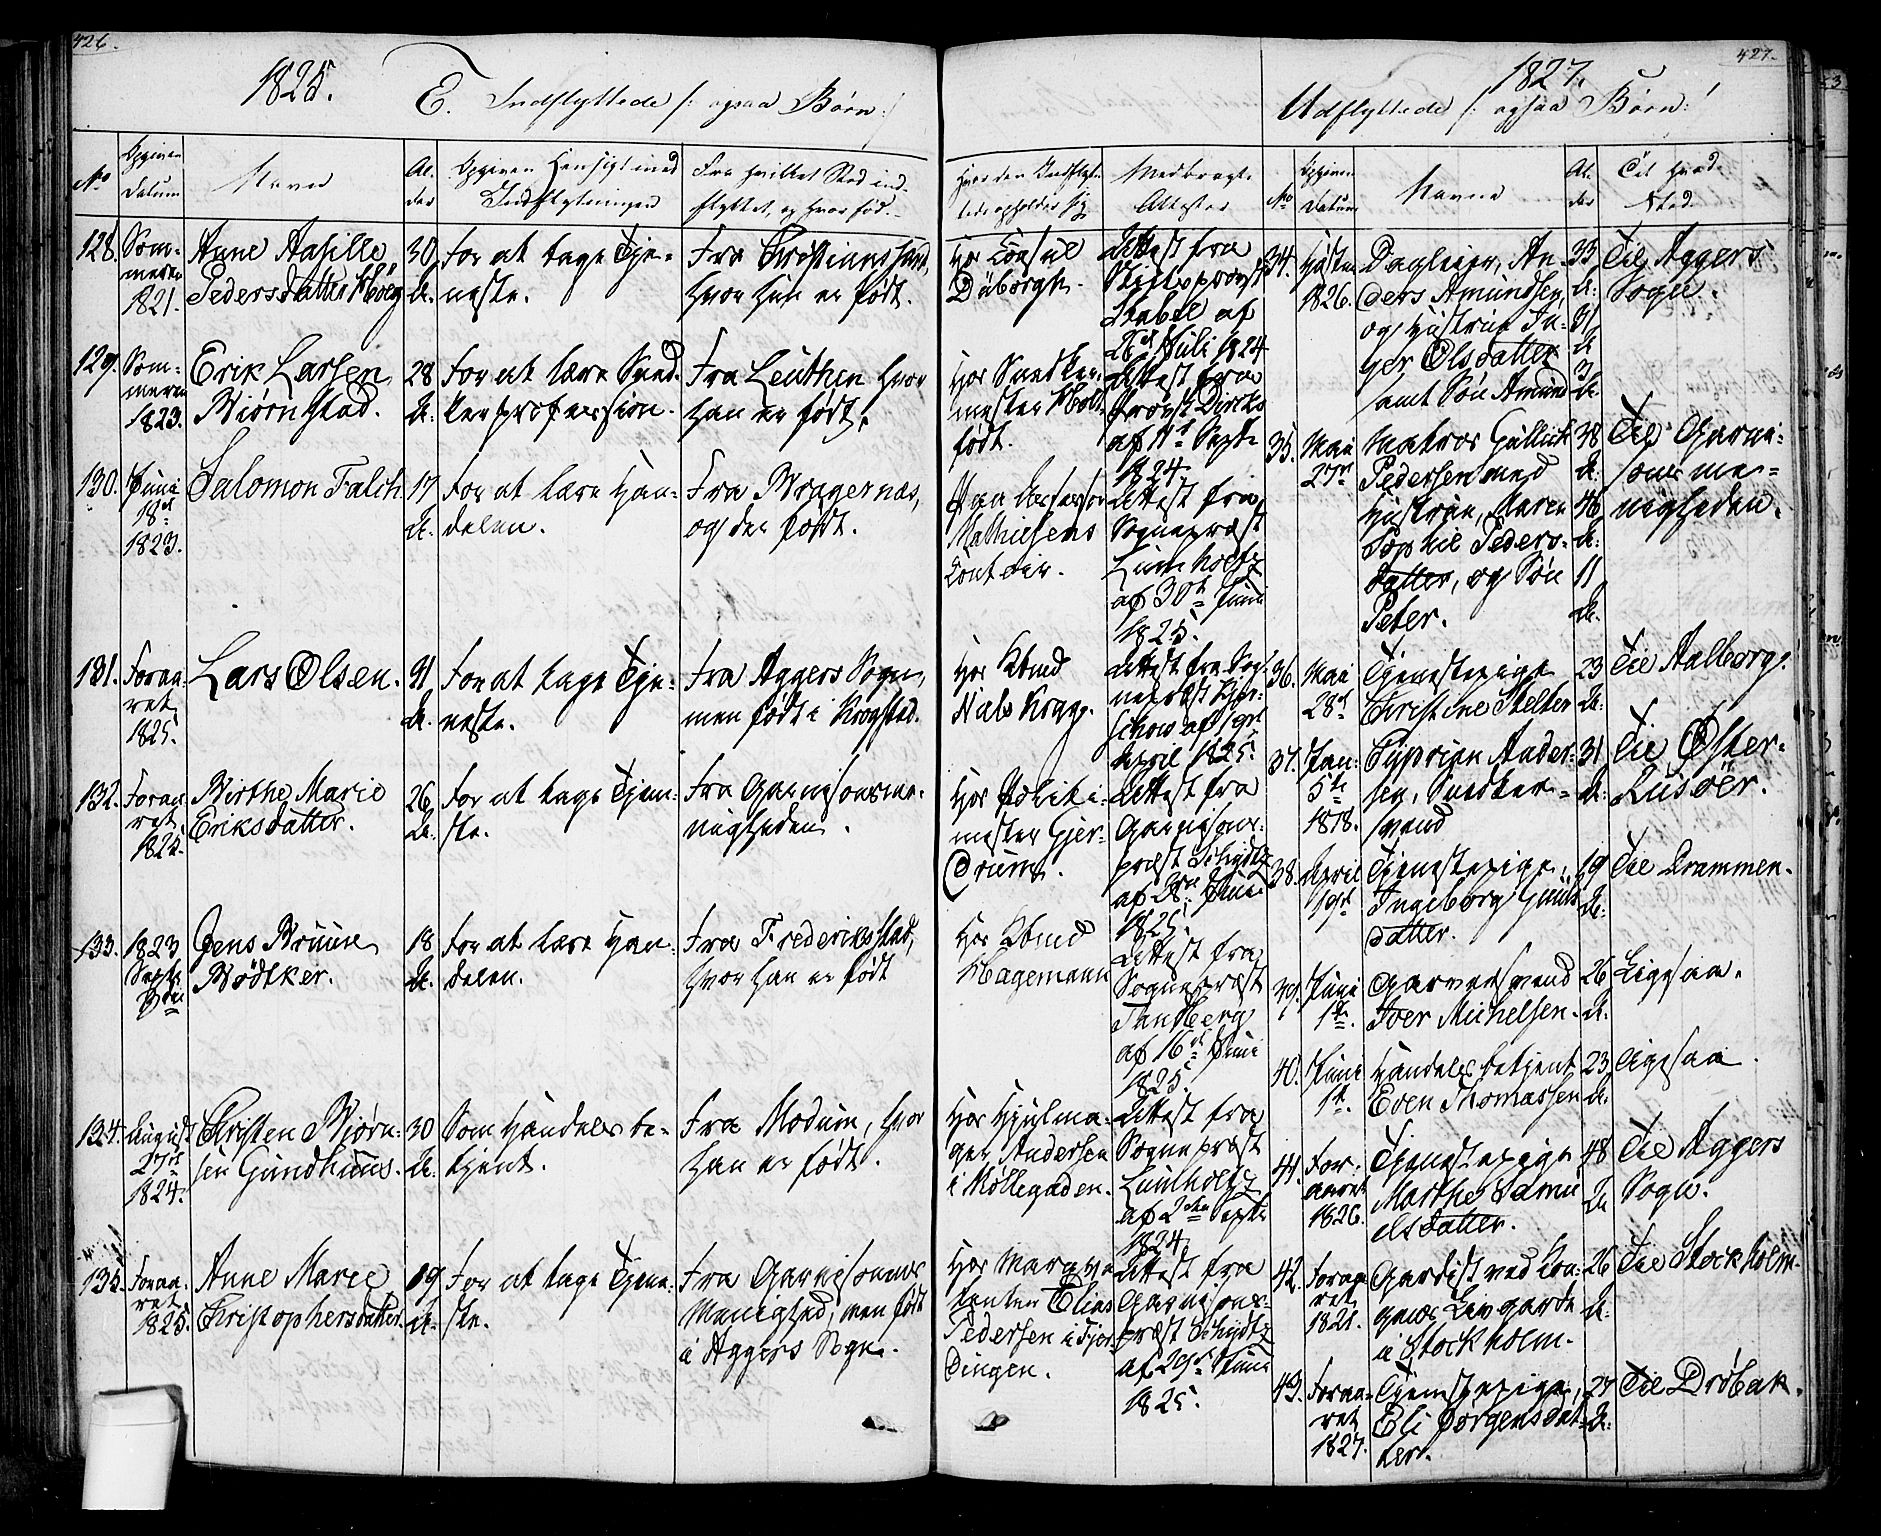 426.
1825.
E. Indflyttede /: ogsaa Børn :/
No
Opgiven Datum
Navne
Alder
Opgiven Hensigt med Indflytningen
Fra hvilket Sted indflyttet, og hvor fød.
Hvor den Indflyttede opholder sig
Medbragte Attester
128.
Sommeren 1821.
Anne Aasille Pedersdatter Høeg
30 A.
For at tage Tjeneste.
Fra Christianssund, hvor hun er født.
Hos Consul Düborgh.
Attest fra Stiftsprovst Stabel af 28de Juli 1824
129.
Sommeren 1823.
Erik Larsen Biørnstad.
28 A.
For at lære Snedkerprofession.
Fra Leuthen hvor han er født.
Hos Snedkermester Holtfodt.
Attest fra Provst Dircks af 11t Septr 1824
130.
Juni 18de 1823.
Salomon Falch
17 A.
For at lære Handelen.
Fra Bragernæs, og der født.
Paa Assessor Mathiesens Contoir.
Attest fra Sognepræst Lumholtz af 30te Juni 1825.
131.
Foraaret 1825.
Lars Olsen.
21 A.
For at tage Tjeneste.
Fra Aggers Sogn, men født i Krogstad.
Hos Kbmd Niels Kragg.
Attest fra Sognepræst af 19de April 1825.
132.
Foraaret 1825.
Birthe Marie Eriksdatter.
26 A.
For at tage Tjeneste.
Fra Garnisonsmenigheden.
Hos Politimester Gjerdrum.
Attest fra Garnisonspræst Schydtz af 28de Juni 1825.
133.
1823 Septr 3die
Jens Bruun Bödtker.
18 A.
For at lære Handelen.
Fra Frederiksstad, hvor han er født
Hos Kbmd Hagemann
Attest fra Sognepræst Tandberg af 16de Juni 1825.
134.
August 27de 1824.
Christen Bjørnsen Gundhuus.
30 A.
Som Handelsbetjent.
Fra Modum, hvor han er født.
Hos Hjulmager Andersen i Møllegaden.
Attest fra Sognepræst Lumholtz af 2den Septr 1824
135.
Foraaret 1825.
Anne Marie Christophersdatter.
19 A.
For at tage Tjeneste.
Fra Garnisonens Menighed, men født i Aggers Sogn.
Hos Marqvetenter Elias Pedersen i Fjerdingen.
Attest fra Garnisonspræst Schydtz af 29de Juni 1825.
427.
1827.
Udflyttede /: ogsaa Børn :/
No
Opgiven Datum
Navne
Alder
Til hvad Sted.
34.
Høsten 1826.
Dagleier, Anders Amundsen, og Hustrue Inger Olsdatter samt Søn Amund
33 A. 31 A. 3 A.
Til Aggers Sogn.
35.
Mai 27de
Matros Gullich Pedersen med Hustrue, Maren Sophie Pedersdatter, og Søn Peter.
38 A. 46 A. 11 A.
Til Garnisonsmenigheden.
36.
Mai 28de
Tjenestepige Christine Stelter
23 A.
Til Aalborg.
37.
Jan: 5te 1818.
Cyprian Andersen, Snedkersvend
31 A.
Til Øster-Riisöer.
38.
April 19de
Tjenestepige, Ingeborg Gundsdatter.
19 A.
Til Drammen.
39.
Juni 1te.
Garversvend Iver Michelsen.
26 A.
Ligesaa.
40.
Juni 1te.
Handelsbetjent Even Thomassen
23 A.
Ligesaa.
41.
Foraaret 1826.
Tjenestepige Marthe Samuelsdatter.
48 A.
Til Aggers Sogn.
42.
Foraaret 1821.
Gardist ved Kongens Livgarde i Stockholm.
26 A.
Til Stockholm.
43.
Foraaret 1827.
Tjenestepige, Eli Jørgensdatter.
27 A.
Til Drøbak.